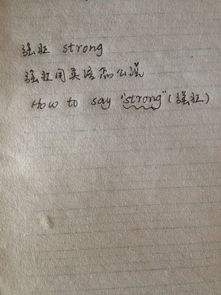 强壮 strong
强壮用英语怎么说
How to say "strong" (强壮)